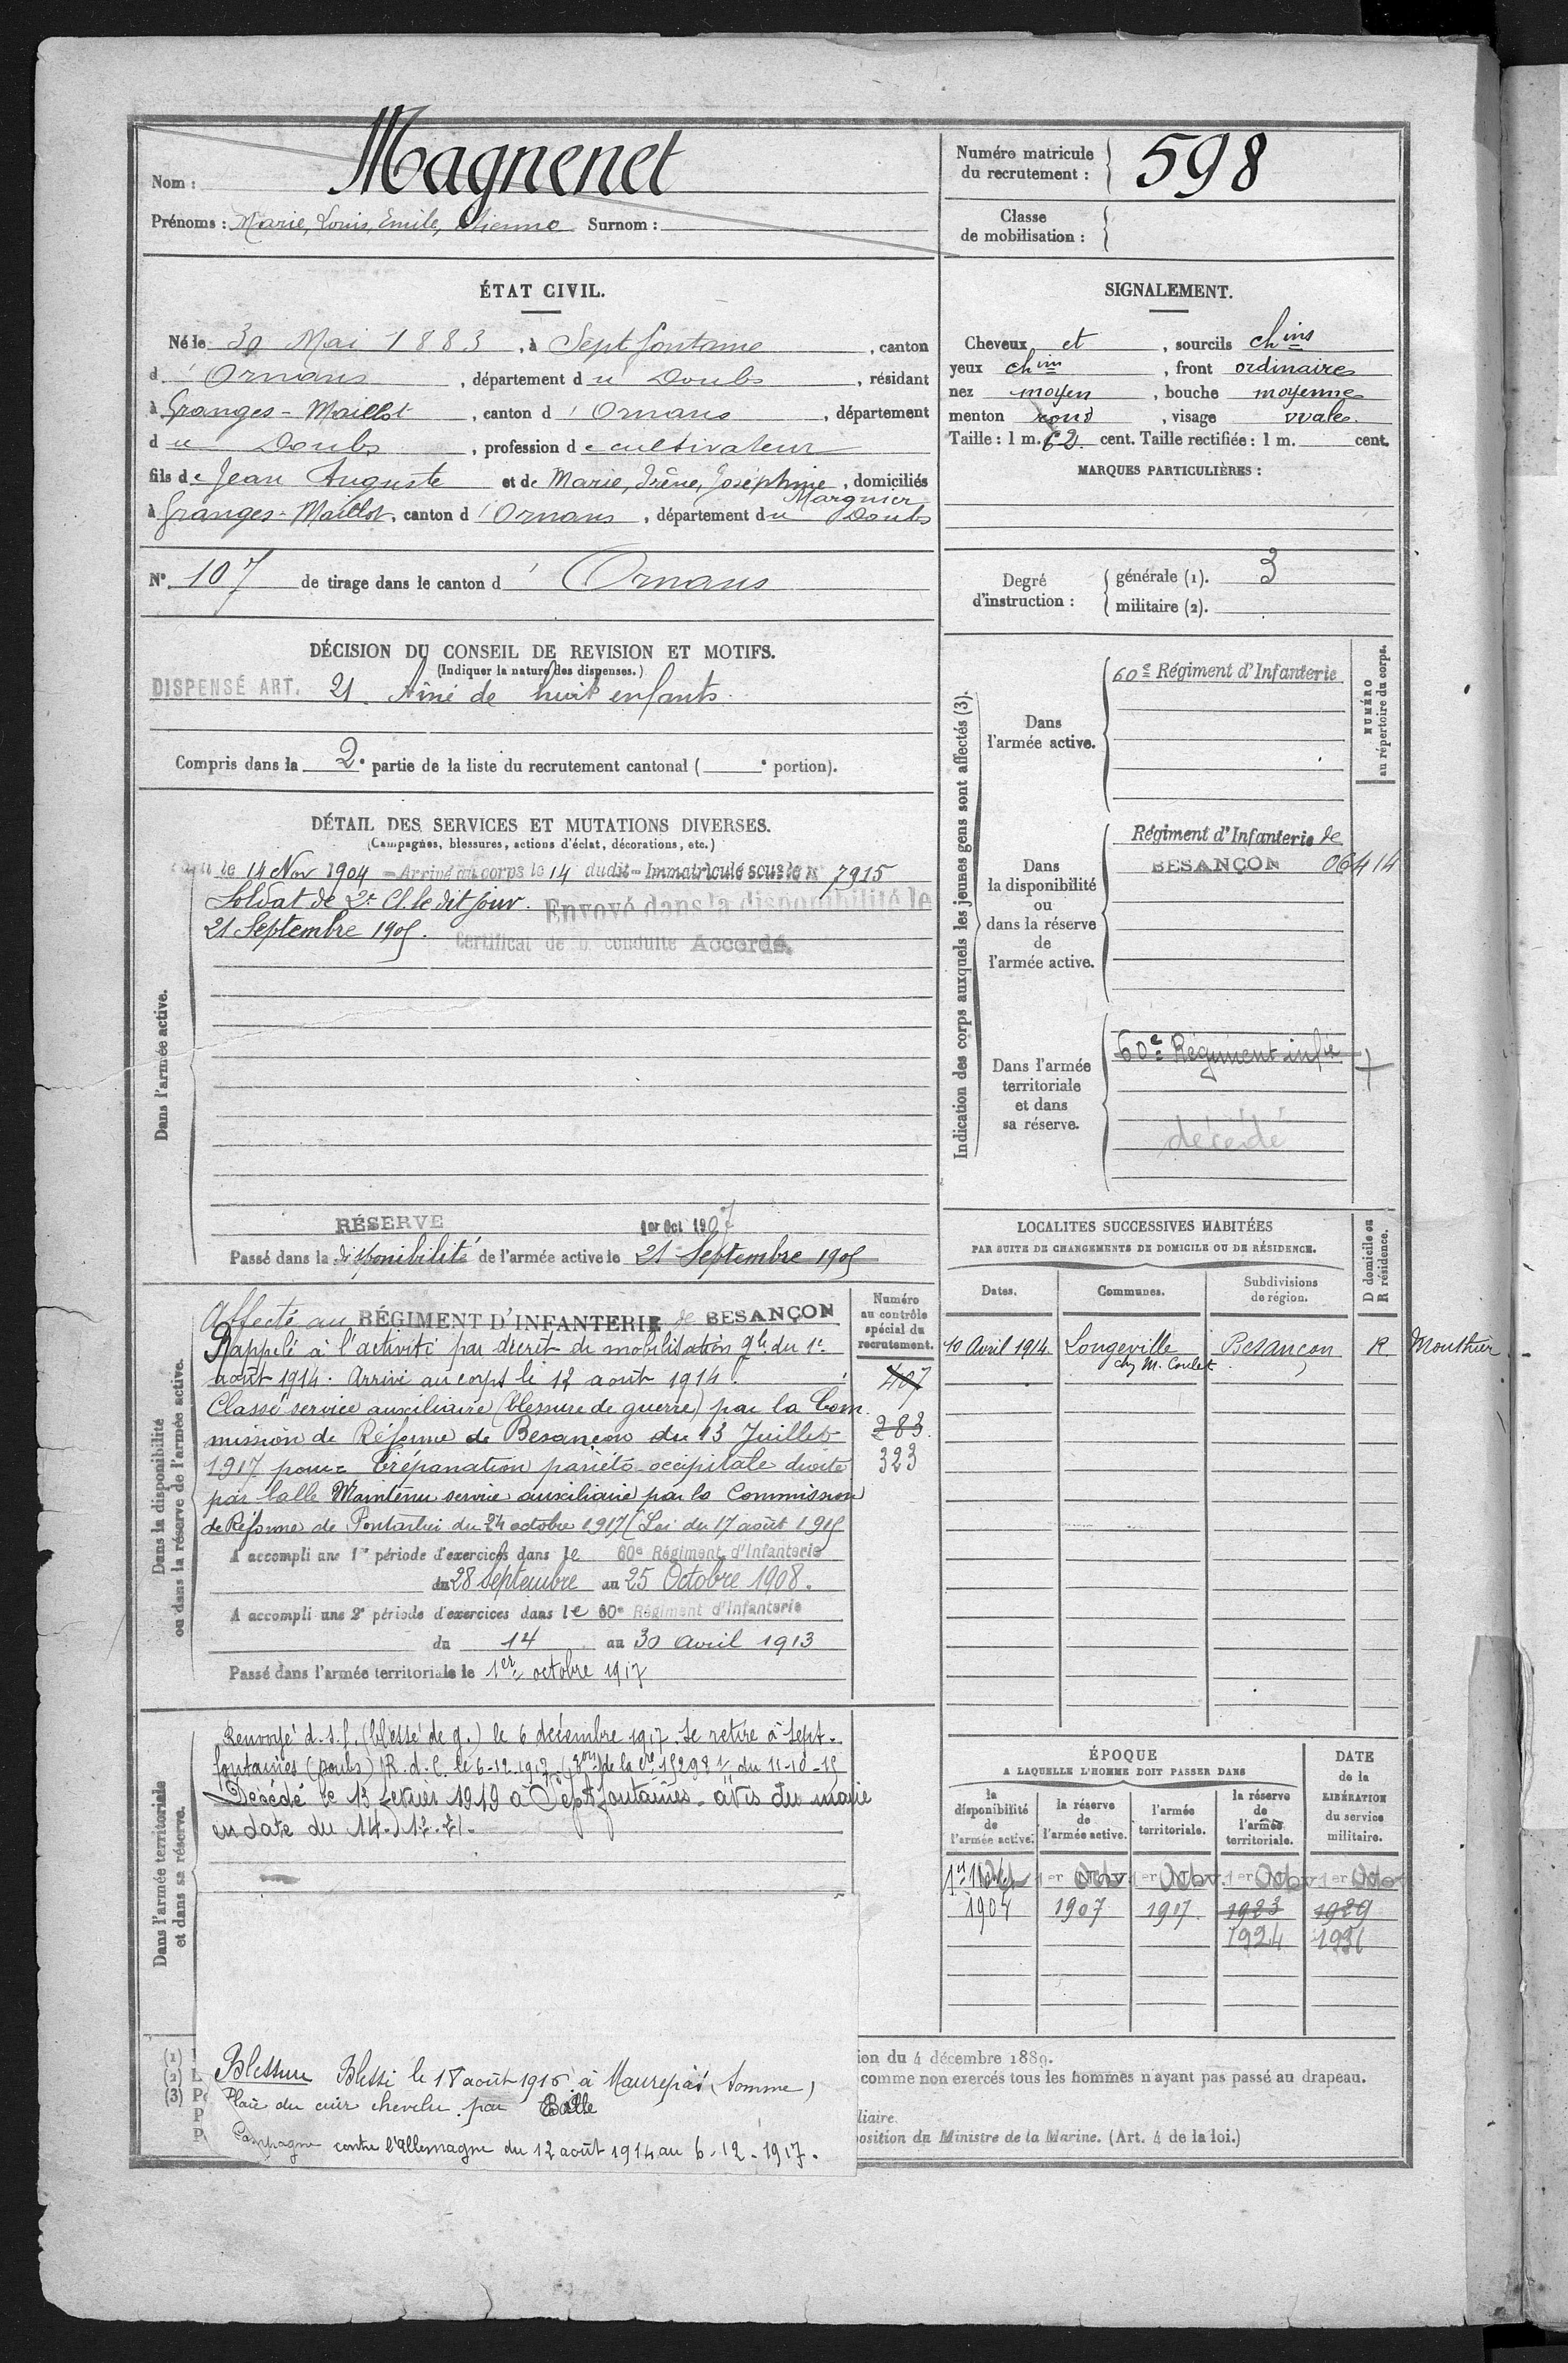 Nom : Magnenet
Prénoms : Marie, Louis, Emile, Etienne Surnom :
Numéro matricule du recrutement : 598
Classe de mobilisation :
ÉTAT CIVIL.
Né le 30 Mai 1883, à Septfontaine, canton
d'Ornans, département du Doubs, résidant
à Granges-Maillot, canton d'Ornans, département
du Doubs, profession de cultivateur
fils de Jean Auguste et de Marie, Irène, Joséphine, domiciliés
Marguier
à Granges-Maillot, canton d'Ornans, département du Doubs
N° 107 de tirage dans le canton d'Ornans
SIGNALEMENT.
Cheveux et, sourcils chins
yeux chin, front ordinaire
nez moyen, bouche moyenne
menton rond, visage ovale.
Taille : 1 m. 62 cent. Taille rectifiée : 1 m. cent.
MARQUES PARTICULIÈRES :
Degré d'instruction :
générale (1). 3
militaire (2).
DÉCISION DU CONSEIL DE REVISION ET MOTIFS.
(Indiquer la nature des dispenses.)
DISPENSÉ ART. 21. Aîné de huit enfants.
Compris dans la 2e partie de la liste du recrutement cantonal ( e portion).
DÉTAIL DES SERVICES ET MUTATIONS DIVERSES.
(Campagnes, blessures, actions d'éclat, décorations, etc.)
Dans l'armée active.
le 14 Nov 1904 - Arrivé au corps le 14 dudit - Immatriculé sous le N° 7915
Soldat de 2e Cl. le dit jour. Envoyé dans la disponibilité le
21 Septembre 1905.
Certificat de b. conduite Accordé.
RÉSERVE 1er Oct 1907
Passé dans la disponibilité de l'armée active le 21 Septembre 1905
Dans la disponibilité
ou dans la réserve de l'armée active.
Affecté au RÉGIMENT D'INFANTERIE de BESANÇON
Rappelé à l'activité par décret de mobilisation gle du 1er
août 1914. Arrivé au corps le 12 août 1914.
Classé service auxiliaire (blessure de guerre) par la Com
mission de Réforme de Besançon du 13 Juillet
1917 pour : trépanation pariéto-occipitale droite
par balle Maintenu service auxiliaire par la Commission
de Réforme de Pontarlier du 24 octobre 1917 (Loi du 17 août 1915
A accompli une 1re période d'exercices dans le 60e Régiment d'Infanterie
du 28 septembre au 25 Octobre 1908.
A accompli une 2e période d'exercices dans le 60e Régiment d'Infanterie
du 14 au 30 avril 1913
Passé dans l'armée territoriale le 1er octobre 1917
Numéro
au contrôle
spécial du
recrutement.
407
283
323
Dans l'armée territoriale
et dans sa réserve.
Renvoyé d.s.f. (blessé de g.) le 6 décembre 1917. Se retire à Sept-
fontaines (Doubs) R.d.C. le 6-12-1917 de la 15298 du 11-10-15
Décédé le 13 février 1919 à Septfontaines - avis du maire
en date du 14-12-21.
Blessure Blessé le 18 août 1916 à Maurepas (Somme)
Plaie du cuir chevelu par Balle
Campagne contre l'allemagne du 12 août 1914 au 6-12-1917.
(1)
(2) L
(3) P
P
P
Indication des corps auxquels les jeunes gens sont affectés (3).
NUMÉRO
au répertoire du corps.
Dans
l'armée active.
60e Régiment d'Infanterie
Dans
la disponibilité
ou
dans la réserve
de
l'armée active.
Régiment d'Infanterie de
BESANÇON 06414
Dans l'armée
territoriale
et dans
sa réserve.
60e Régiment infie
décédé
LOCALITÉS SUCCESSIVES HABITÉES
PAR SUITE DE CHANGEMENTS DE DOMICILE OU DE RÉSIDENCE.
D domicile ou
R résidence.
Dates. Communes. Subdivisions de région.
10 Avril 1914 Longeville Besançon R. Mouthier
chz M. Coulet
ÉPOQUE
A LAQUELLE L'HOMME DOIT PASSER DANS
la disponibilité de l'armée active.
la réserve de l'armée active.
l'armée territoriale.
la réserve de l'armée territoriale.
DATE de la LIBÉRATION du service militaire.
1er 1er 1er 1er 1er
1904 1907 1917 1923 1929
1924 1931
ion du 4 décembre 1889.
comme non exercés tous les hommes n'ayant pas passé au drapeau.
liaire.
position du Ministre de la Marine. (Art. 4 de la loi.)